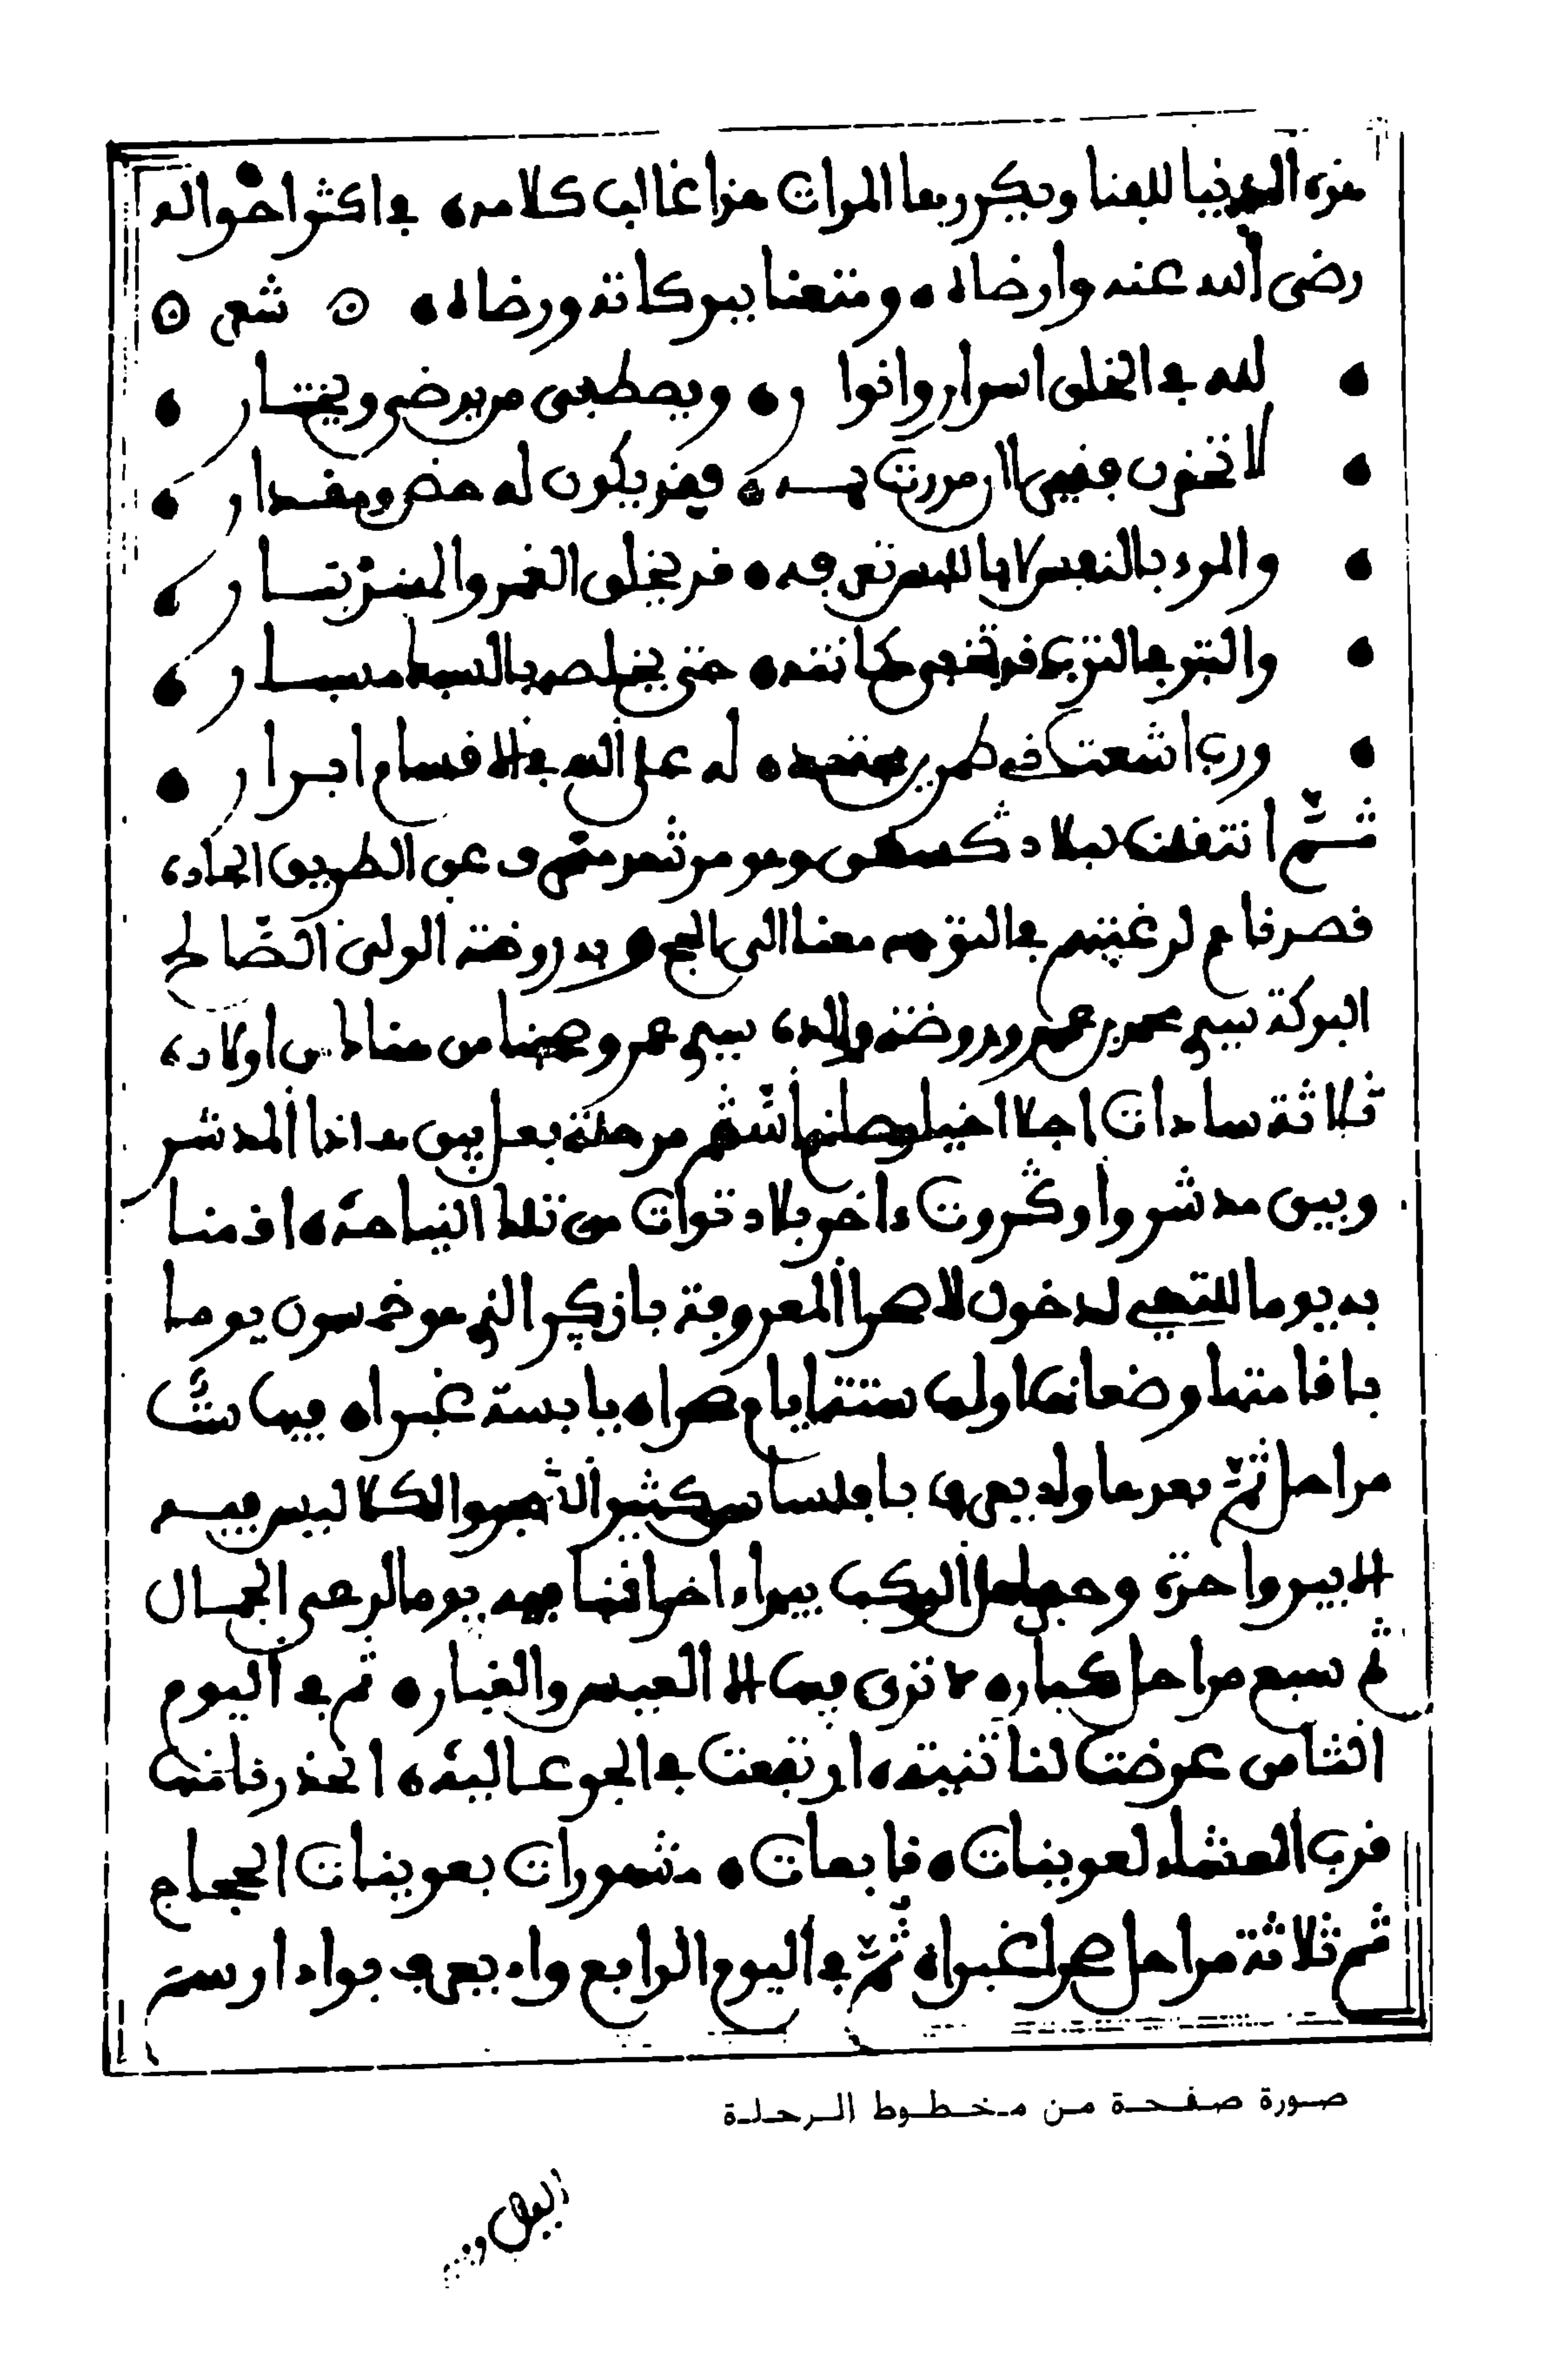 هذه الدنيا للفنا ويكررها المرات هذا غالب كلامه في اكثر احواله
رضى الله عنه وارضاه ومتعنا ببركاته ورضاه شعر
لله في الخلق اسرار وانوار ويصطفى من يرضى ويختار
لا تحقرن فقيرا ان مررت به فقد يكون له حض ومقدار
والمرء بالنفس لا باللبس تعرفه قد يخلق الغمد والهندي بتار
والتبر في الترب قد تخفى مكانته حتى يخلصه بالسبك
ورب اشعث في طمرين له على الله في الاقسام ابرار
ثم انتقلنا لبلاد وهو من ثم عن الطريق الجاده
قصدناهم لرغبتهم في التوجه معنا الى الحج وبه روضة الولى الصالح
البركة سيدي محمد بن عمر وبه روضة والده سيدي عمر وصحبنا من هنالك من اولاده
ثلاثة سادات اجلا مرحلة بعل بين هاذا المدشر
وبين مدشر واوڭروت ءاخر بلاد توات من تلك الناحية اقمنا
به يوما للتهيي لدخول الصحرا المعروفة بازڭر التي هو خمسون يوما
باقامتها وضعانها اولها ستة ايام صحراء يابسة غبراء فيها ست
مراحل ثم بعدها واد يعرف بابلساس كثير الشجر والكلا ليس فيه
الا بير واحدة الركب بيراء اخرا اقمنا فيه يوما لرعي الجمال
ثم سبع مراحل كبار لا ترى فيها الا العبس والغبار ثم في اليوم
الثامن عرضت لنا ثنية ارتفعت في الجو عالية انحدرنا منها
قرب العشاء لعوينات نابعات مشهورات بعوينات الحجاج
ثم ثلاثة مراحل صحرا غبراء ثم في اليوم الرابع واد يعرف بواد ارسة
صورة صفحة من مخطوط الرحلة